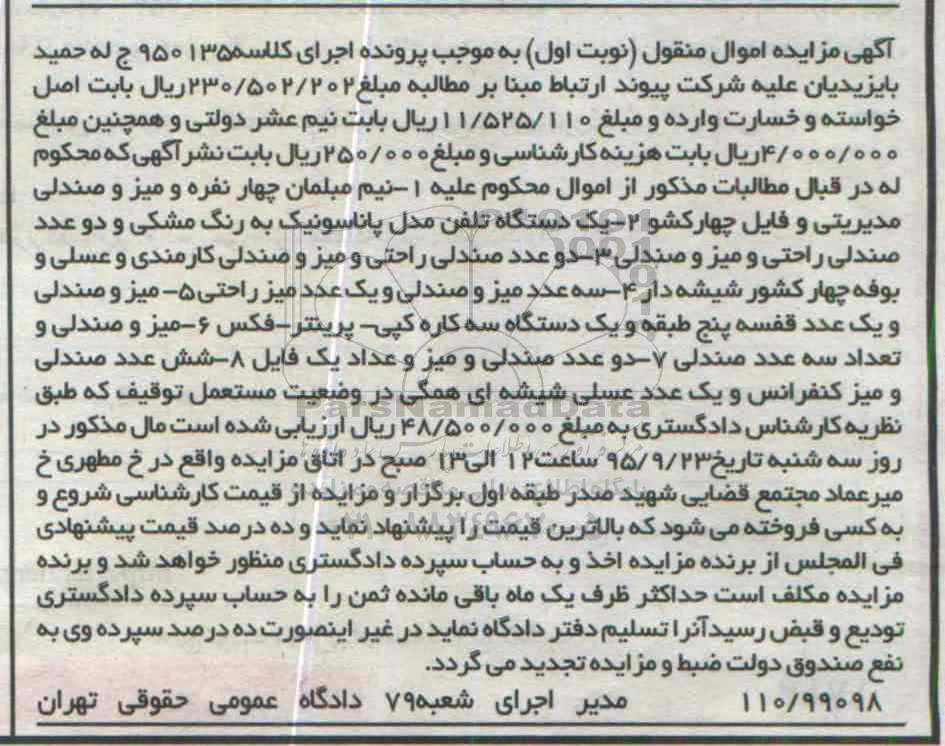 آگهی مزایده اموال منقول (نوبت اول) به موجب پرونده اجرای کلاسه۹۵۰۱۳۵ ج له حمید
بایزیدیان علیه شرکت پیوند ارتباط مبنا بر مطالبه مبلغ۲۳۰/۵۰۲/۲۰۲ریال بابت اصل
خواسته و خسارت وارده و مبلغ ۱۱/۵۲۵/۱۱۰ریال بابت نیم عشر دولتی و همچنین مبلغ
۴/۰۰۰/۰۰۰ریال بابت هزینه کارشناسی و مبلغ۲۵۰/۰۰۰ریال بابت نشر آگهی که محکوم
له در قبال مطالبات مذکور از اموال محکوم علیه ۱-نیم مبلمان چهار نفره و میز و صندلی
مدیریتی و فایل چهارکشو۲-یک دستگاه تلفن مدل پاناسونیک به رنگ مشکی و دو عدد
صندلی راحتی و میز و صندلی۳-دو عدد صندلی راحتی و میز و صندلی کارمندی و عسلی و
بوفه چهار کشور شیشه دار۴-سه عدد میز و صندلی و یک عدد میز راحتی۵- میز و صندلی
و یک عدد قفسه پنج طبقه و یک دستگاه سه کاره کپی- پرینتر-فکس ۶-میز و صندلی و
تعداد سه عدد صندلی ۷-دو عدد صندلی و میز و عداد یک فایل ۸-شش عدد صندلی
و میز کنفرانس و یک عدد عسلی شیشه ای همگی در وضعیت مستعمل توقیف که طبق
نظریه کارشناس دادگستری به مبلغ ۴۸/۵۰۰/۰۰۰ ریال ارزیابی شده است مال مذکور در
روز سه شنبه تاریخ۹۵/۹/۲۳ ساعت۱۲ الی۱۳ صبح در اتاق مزایده واقع در خ مطهری خ
میرعماد مجتمع قضایی شهید صدر طبقه اول برگزار و مزایده از قیمت کارشناسی شروع و
به کسی فروخته می شود که بالاترین قیمت را پیشنهاد نماید و ده درصد قیمت پیشنهادی
فی المجلس از برنده مزایده اخذ و به حساب سپرده دادگستری منظور خواهد شد و برنده
مزایده مکلف است حداکثر ظرف یک ماه باقی مانده ثمن را به حساب سپرده دادگستری
تودیع و قبض رسیدآنرا تسلیم دفتر دادگاه نماید در غیر اینصورت ده درصد سپرده وی به
نفع صندوق دولت ضبط و مزایده تجدید می گردد.
۱۱۰/۹۹۰۹۸ مدیر اجرای شعبه۷۹ دادگاه عمومی حقوقی تهران
ParsNamadData